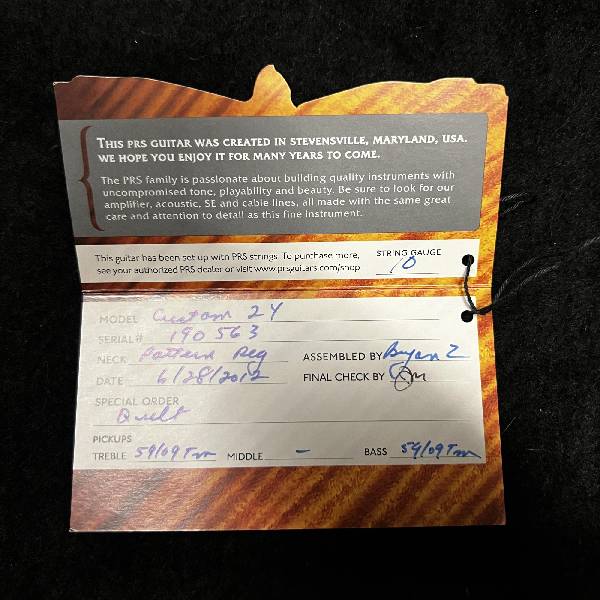 THIS PRS GUITAR WAS CREATED IN STEVENSVILLE, MARYLAND, USA.
WE HOPE YOU ENJOY IT FOR MANY YEARS TO COME.
The PRS family is passionate about building quality instruments with
uncompromised tone, playability and beauty. Be sure to look for our
amplifier, acoustic, SE and cable lines, all made with the same great
care and attention to detail as this fine instrument.
This guitar has been set up with PRS strings. To purchase more,
see your authorized PRS dealer or visit www.prsguitars.com/shop
STRING GAUGE
10
MODEL Custom 24
SERIAL# 190563
NECK Pattern Reg ASSEMBLED BY Bryan Z
DATE 6/28/2012 FINAL CHECK BY
SPECIAL ORDER
Quilt
PICKUPS
TREBLE 59/09 Tm MIDDLE - BASS 59/09 Tm